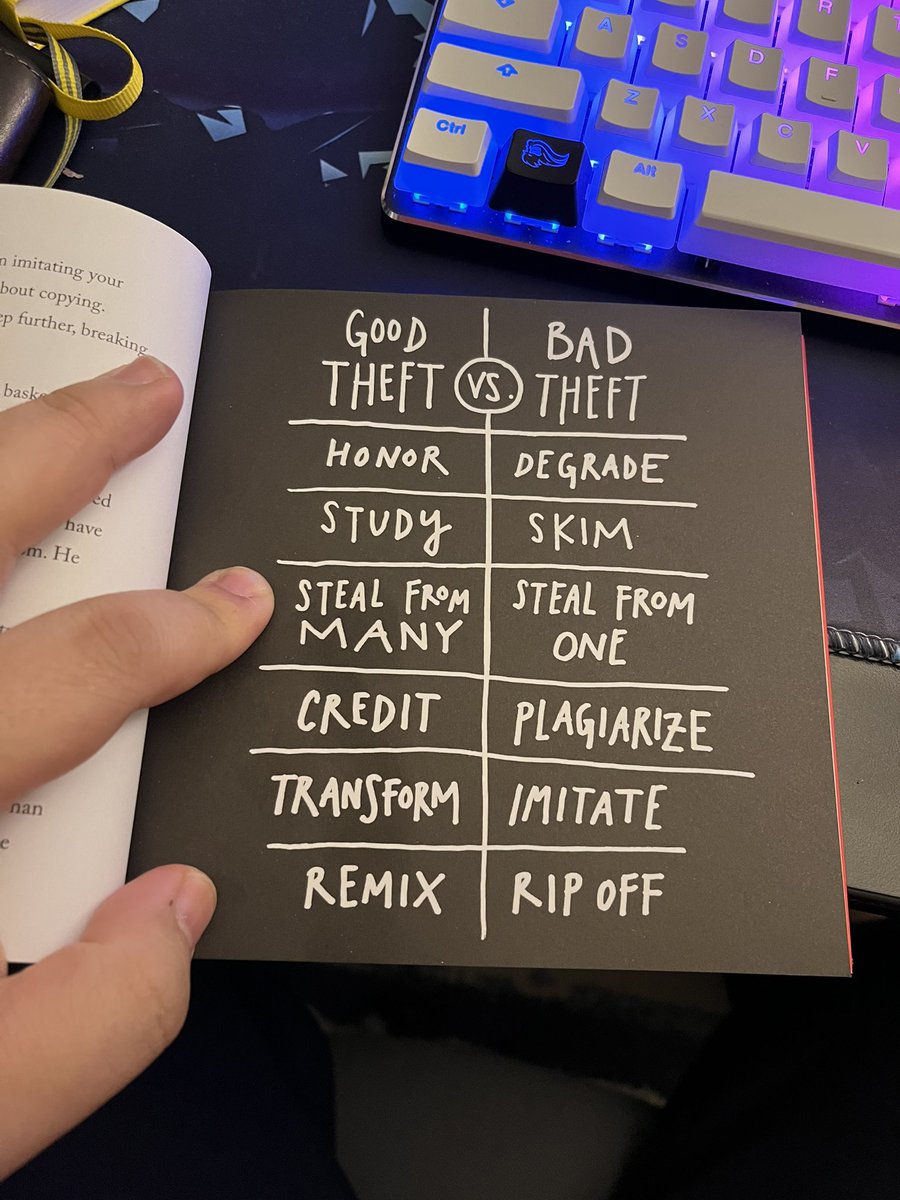 R
A
S
D
F
Z
X
C
V
Ctrl
Alt
imitating your
bout copying.
ep further, breaking
ed
have
m. He
nan
e
GOOD THEFT
VS.
BAD THEFT
HONOR
DEGRADE
STUDY
SKIM
STEAL FROM MANY
STEAL FROM ONE
CREDIT
PLAGIARIZE
TRANSFORM
IMITATE
REMIX
RIP OFF